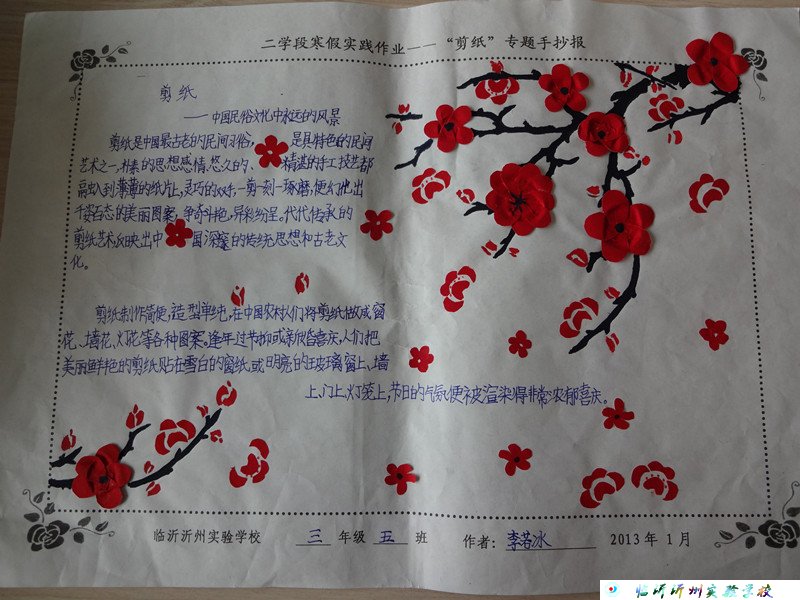 二学段寒假实践作业——“剪纸”专题手抄报
剪纸
——中国民俗文化中永远的风景
剪纸是中国最古老的民间习俗, 是具特色的民间
艺术之一,朴素的思想感情、悠久的、精湛的手工技艺都
融入到薄薄的纸片上,灵巧的双手一剪一刻一琢磨,便幻化出
千姿百态的美丽图案,争奇斗艳,异彩纷呈。代代传承的
剪纸艺术反映出中国深邃的传统思想和古老文
化。
剪纸制作简便,造型单纯,在中国农村人们将剪纸做成窗
花、墙花、灯花等各种图案。逢年过节抑或新婚喜庆,人们把
美丽鲜艳的剪纸贴在雪白的窗纸或明亮的玻璃窗上、墙
上、门上、灯笼上,节日的气氛便被渲染得非常浓郁喜庆。
临沂沂州实验学校 三 年级 五 班 作者:李若冰 2013年1月
临沂沂州实验学校